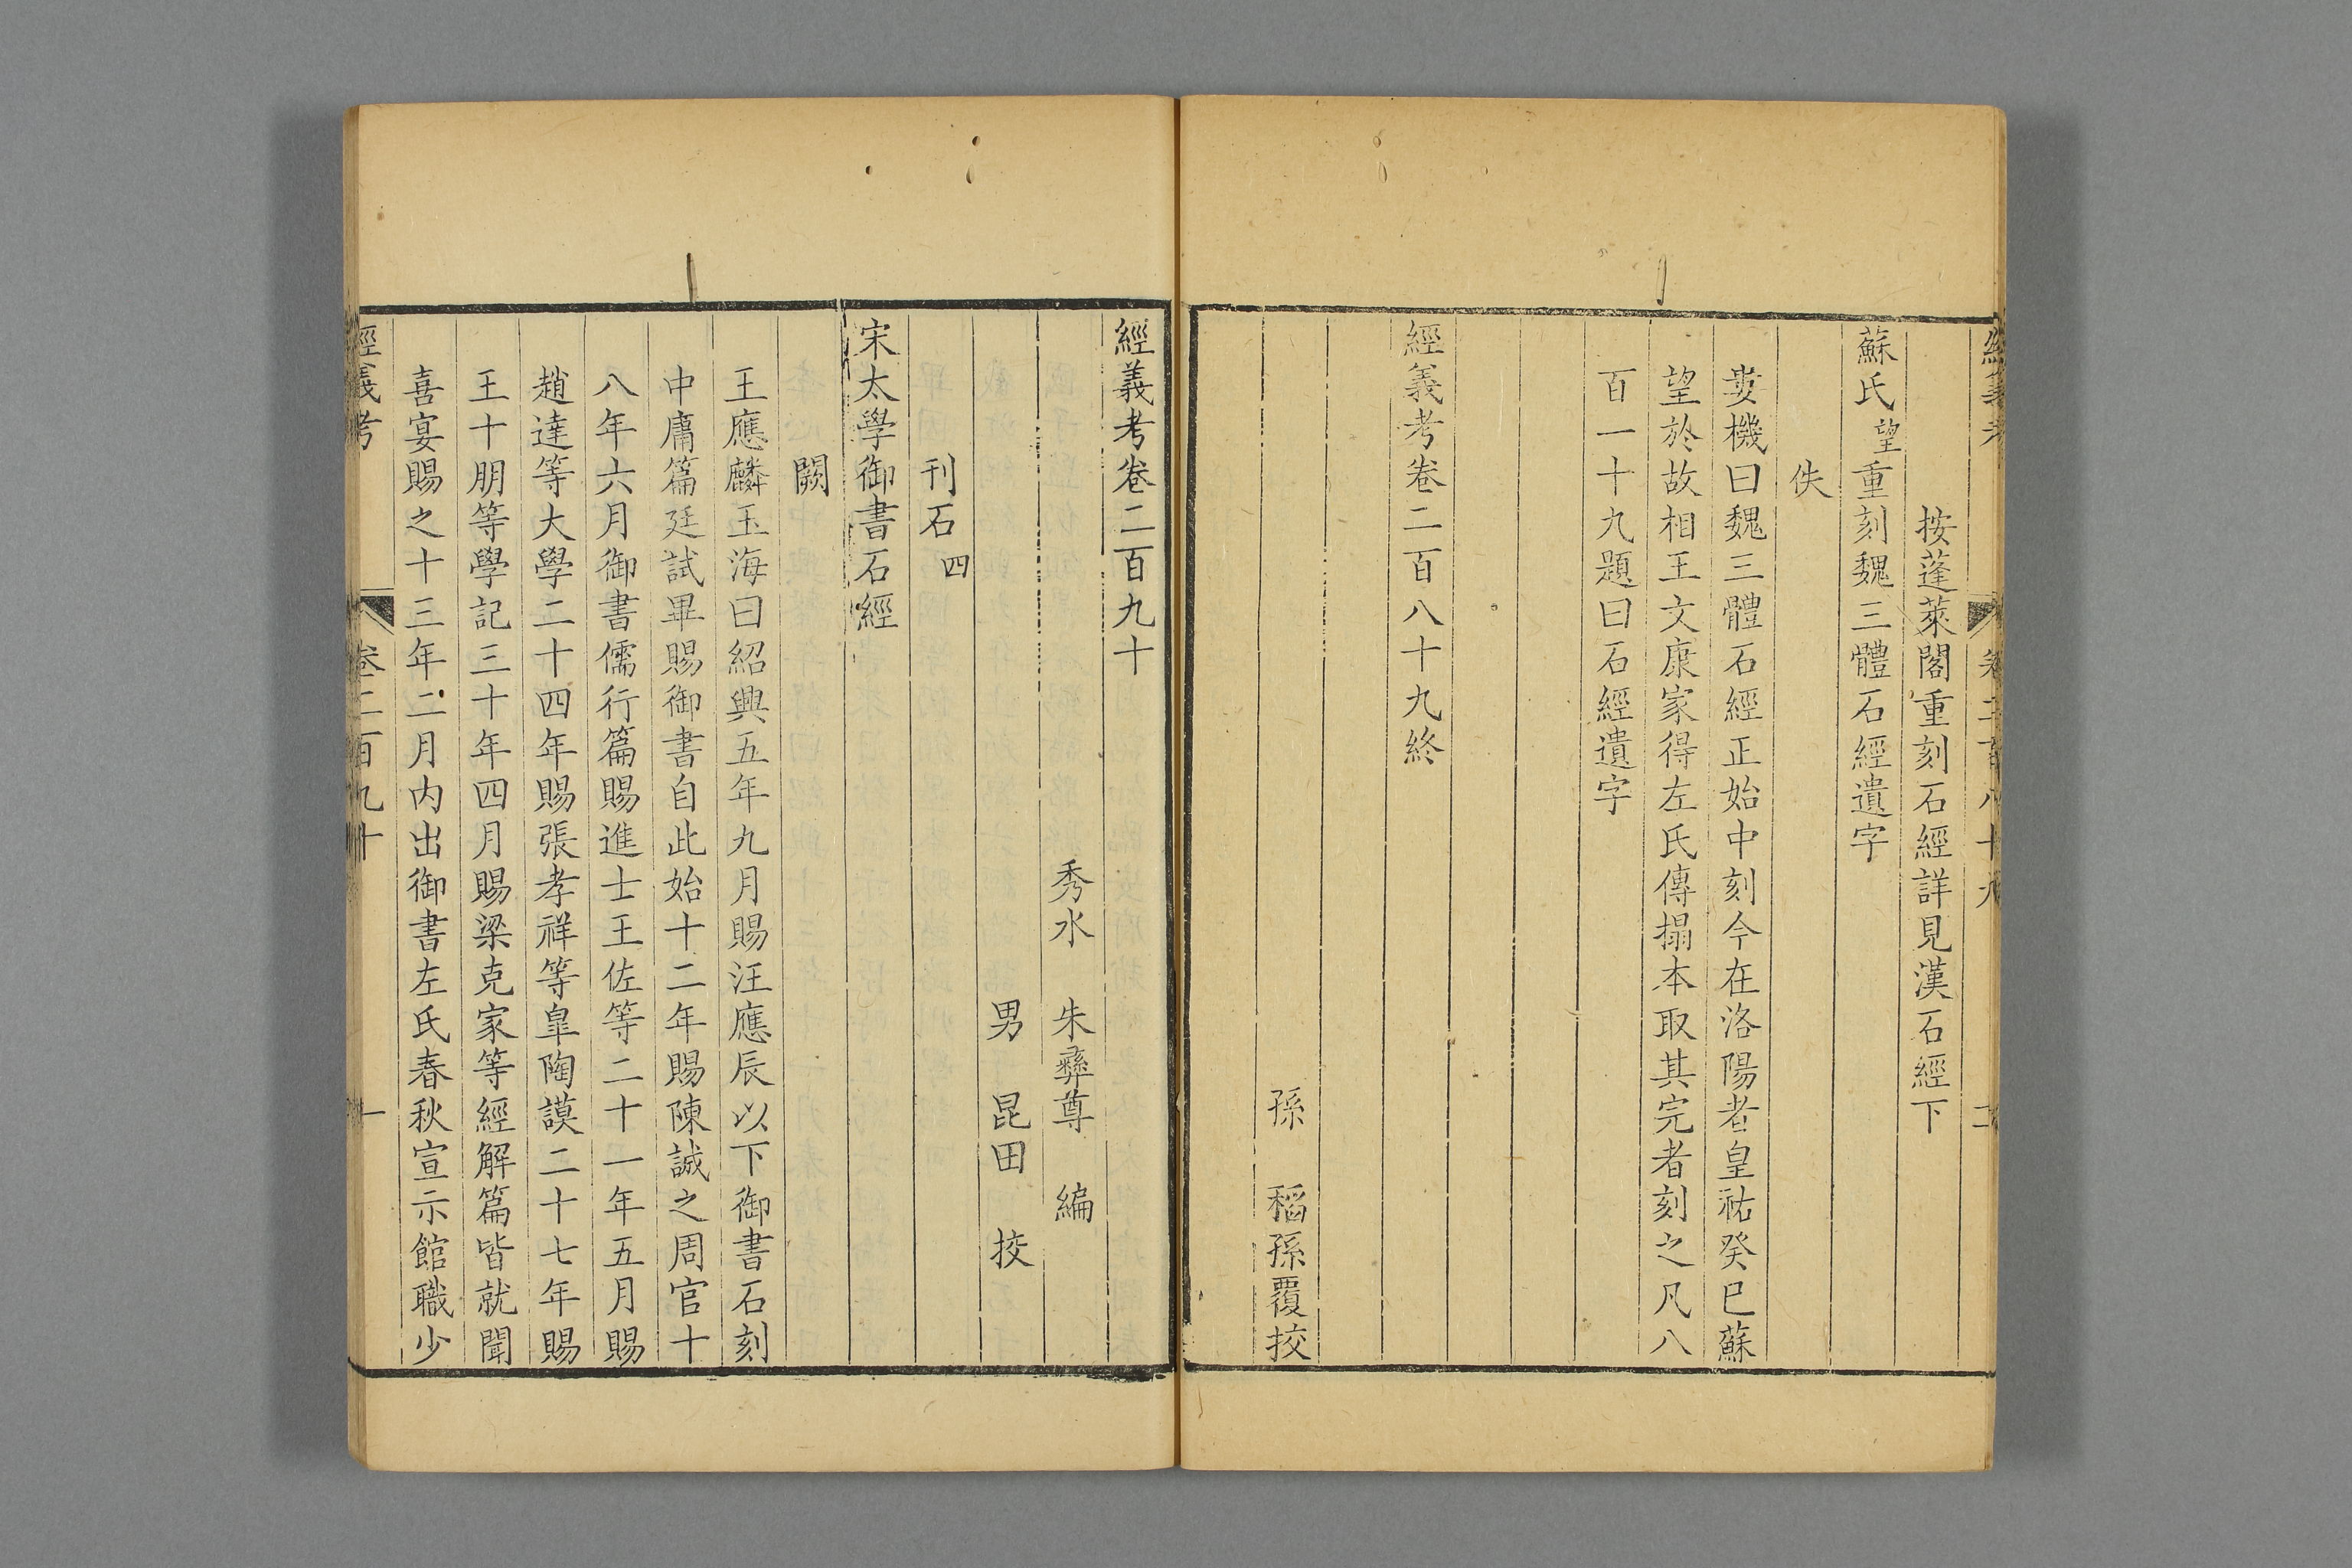 經義考 卷二百八十九 二
按蓬萊閣重刻石經詳見漢石經下
蘇氏望重刻魏三體石經遺字
佚
婁機曰魏三體石經正始中刻今在洛陽者皇祐癸巳蘇
望於故相王文康家得左氏傳搨本取其完者刻之凡八
百一十九題曰石經遺字
經義考卷二百八十九終
孫 稻孫覆挍
經義考卷二百九十
秀水 朱彝尊 編
男 昆田 挍
刊石四
宋太學御書石經
闕
王應麟玉海曰紹興五年九月賜汪應辰以下御書石刻
中庸篇廷試畢賜御書自此始十二年賜陳誠之周官十
八年六月御書儒行篇賜進士王佐等二十一年五月賜
趙逵等大學二十四年賜張孝祥等臯陶謨二十七年賜
王十朋等學記三十年四月賜梁克家等經解篇皆就聞
喜宴賜之十三年二月内出御書左氏春秋宣示館職少
經義考 卷二百九十 一